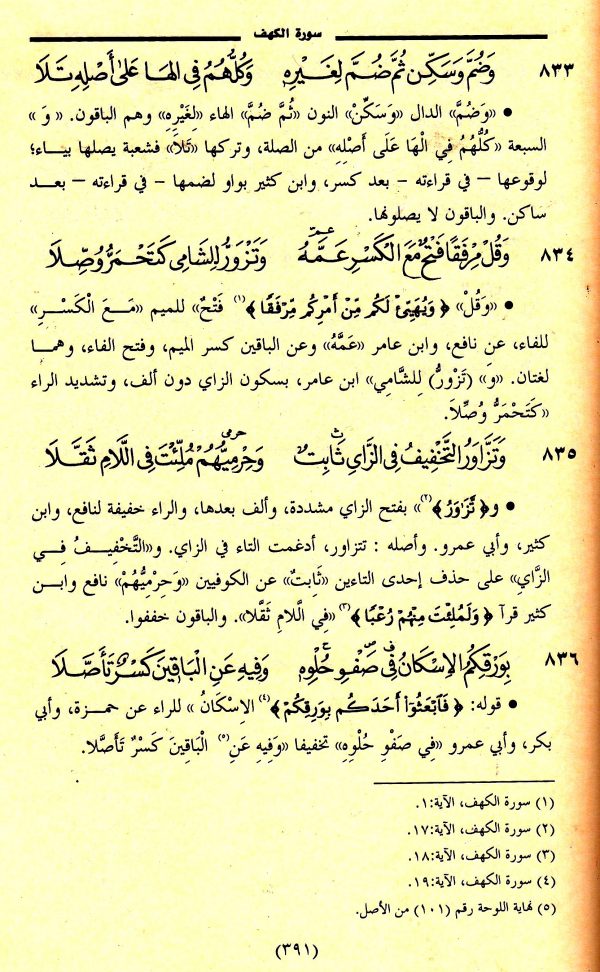 سورة الكهف
٨٣٣ وَضُمَّ وَسَكِّن ثُمَّ ضُمَّ لِغَيْرِهِ وَكُلُّهُمُ فِي الهَا عَلَى أَصْلِهِ تَلَا
• «وَضُمَّ» الدال «وَسَكِّنْ» النون «ثُمَّ ضُمَّ» الهاء «لِغَيْرِهِ» وهم الباقون. «وَ»
السبعة «كُلُّهُمُ فِي الْهَا عَلَى أَصْلِهِ» من الصلة، وتركها «تَلاَ» فشعبة يصلها بياء؛
لوقوعها – في قراءته – بعد كسر، وابن كثير بواو لضمها – في قراءته – بعد
ساكن. والباقون لا يصلونها.
٨٣٤ وَقُلْ مِرْفَقًا فَتْحٌ مَعَ الْكَسْرِ عَمَّهُ وَتَزْوَرُّ لِلشَّامِي كَتَحْمَرُّ وُصِّلَا
عم
• «وَقُلْ» ﴿وَيُهَيِّئْ لَكُم مِّنْ أَمْرِكُم مِّرْفَقًا﴾(١) فَتْحٌ» للميم «مَعَ الْكَسْرِ»
للفاء، عن نافع، وابن عامر «عَمَّهُ» وعن الباقين كسر الميم، وفتح الفاء، وهما
لغتان. «وَ» (تَزْوَرُّ) لِلشَّامِي» ابن عامر، بسكون الزاي دون ألف، وتشديد الراء
«كَتَحْمَرُّ وُصِّلاَ.
٨٣٥ وَتَزَّاوَرُ التَّخْفِيفُ فِي الزَّايِ ثَابِتٌ وَحِرْمِيُّهُمْ مُلِّئْتَ فِي اللَّامِ ثَقَّلَا
ث حرمى
• و﴿تَّزَاوَرُ﴾(٢)» بفتح الزاي مشددة، وألف بعدها، والراء خفيفة لنافع، وابن
كثير، وأبي عمرو. وأصله : تتزاور، أدغمت التاء في الزاي. و«التَّخْفِيفُ فِي
الزَّايِ» على حذف إحدى التاءين «ثَابِتٌ» عن الكوفيين «وَحِرْمِيُّهُمْ» نافع وابن
كثير قرآ ﴿وَلَمُلِّئْتَ مِنْهُمْ رُعْبًا﴾(٣) «فِي اللَّامِ ثَقَّلا». والباقون خففوا.
٨٣٦ بِوَرْقِكُمُ الإِسْكَانُ فِي صَفْوِ حُلْوِهِ وَفِيهِ عَنِ الْبَاقِينَ كَسْرٌ تَأَصَّلَا
• قوله: ﴿فَابْعَثُوا أَحَدَكُم بِوَرِقِكُمْ﴾(٤) الإِسْكَانُ» للراء عن حمزة، وأبي
بكر، وأبي عمرو «فِي صَفْوِ حُلْوِهِ» تخفيفا «وَفِيهِ عَنِ(٥) الْبَاقِينَ كَسْرٌ تَأَصَّلا.
(١) سورة الكهف، الآية:١.
(٢) سورة الكهف، الآية:١٧.
(٣) سورة الكهف، الآية:١٨.
(٤) سورة الكهف، الآية:١٩.
(٥) نهاية اللوحة رقم (١٠١) من الأصل.
(٣٩١)